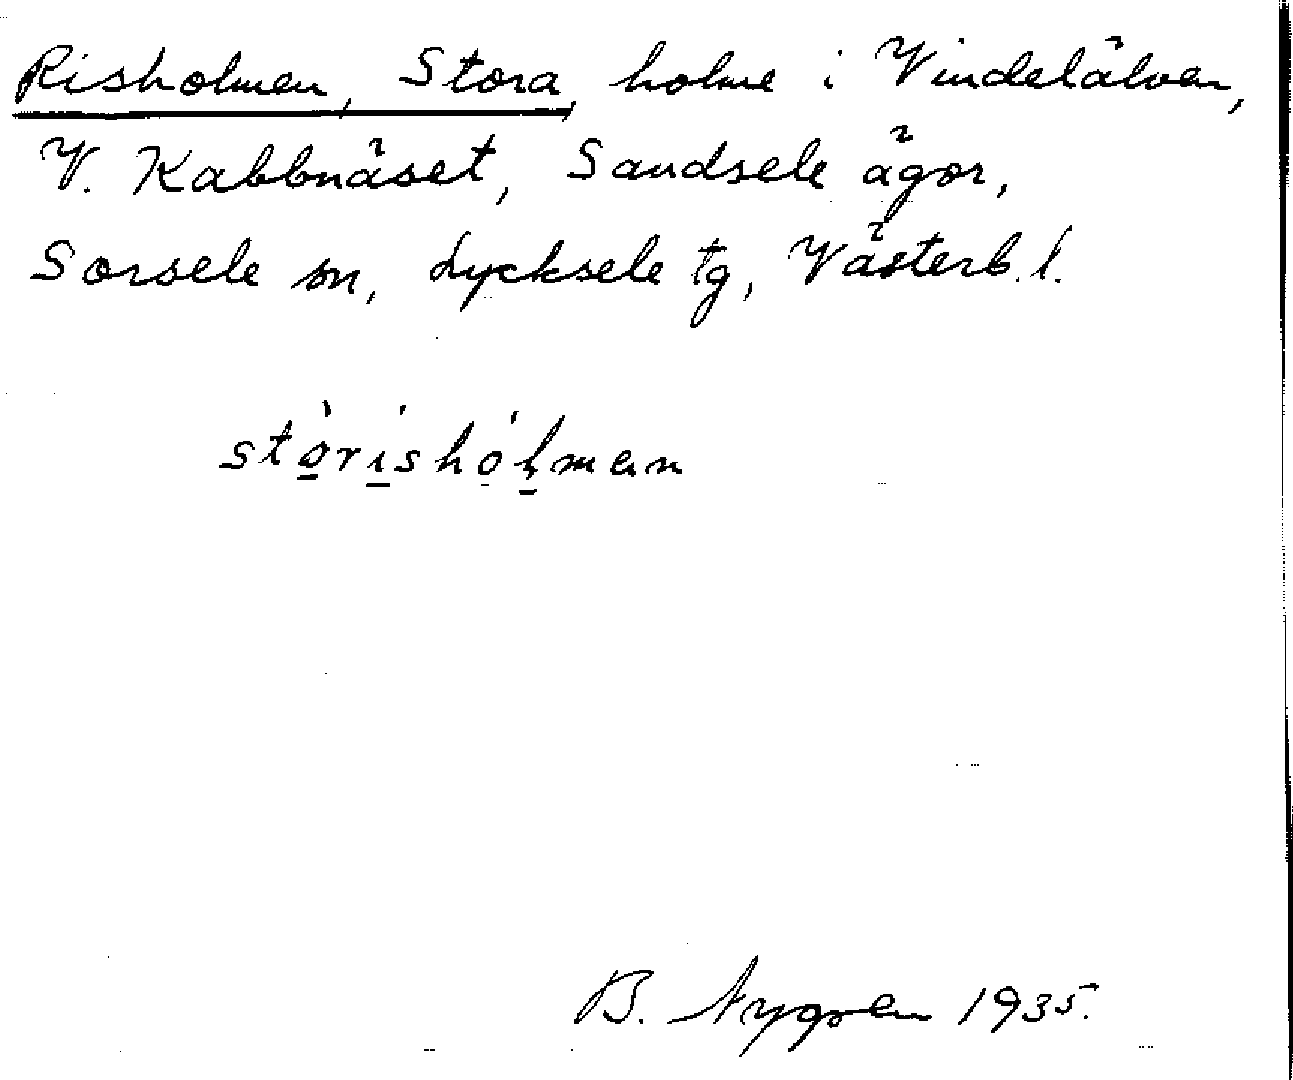 Risholmen, Stora, holme i Vindelälven,
V. Kabbnäset, Sandsele ägor,
Sorsele sn, Lycksele tg, Västerb. l.
stò̱rí̱shóḻman
B. Nygren 1935.